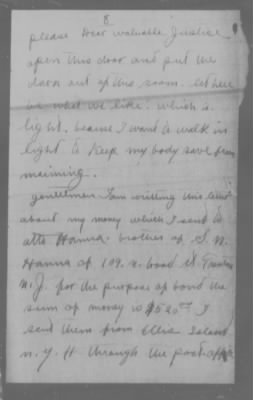 8
please Dear valuable Justice
open this door and put the
dark out of this room. let here
be what we like. which is
light. because I want to walk in
light to keep my body save from
maiming.
gentlemen I am writting this
about my money which I sent to
atto Hanna. brother of S. N.
Hanna of 109. N.
N.J. for the purpose of bond the
sum of money is $520 I
sent them from Ellis Island
N.Y. H through the post office